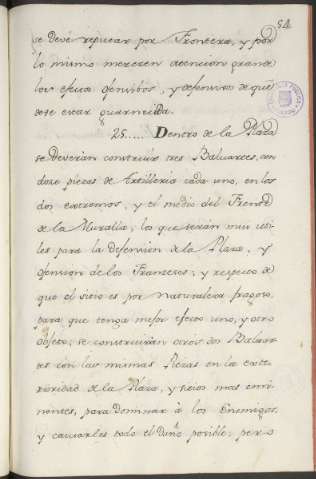 54
se deve reputar por Frontera, y por
lo mismo merecen atencion grande
los efectos ofensivos, y defensivos de que
deve estar guarnecida.
25..... Dentro de la Plaza
se deverán construir tres Baluartes, con
doze piezas de Artilleria cada uno, en los
dos extremos, y el medio del Frente
de la Muralla; los que serán mui uti-
les para la defension de la Plaza, y
ofension de los Franceses; y respecto de
que el sitio es por naturaleza fragoso,
para que tenga mejor efecto uno, y otro
objeto, se construirán otros dos Baluar-
tes con las mismas Piezas en la exte-
rioridad de la Plaza, y sitios mas emi-
nentes, para Dominar à los Enemigos,
y causarles todo el Daño posible; pero